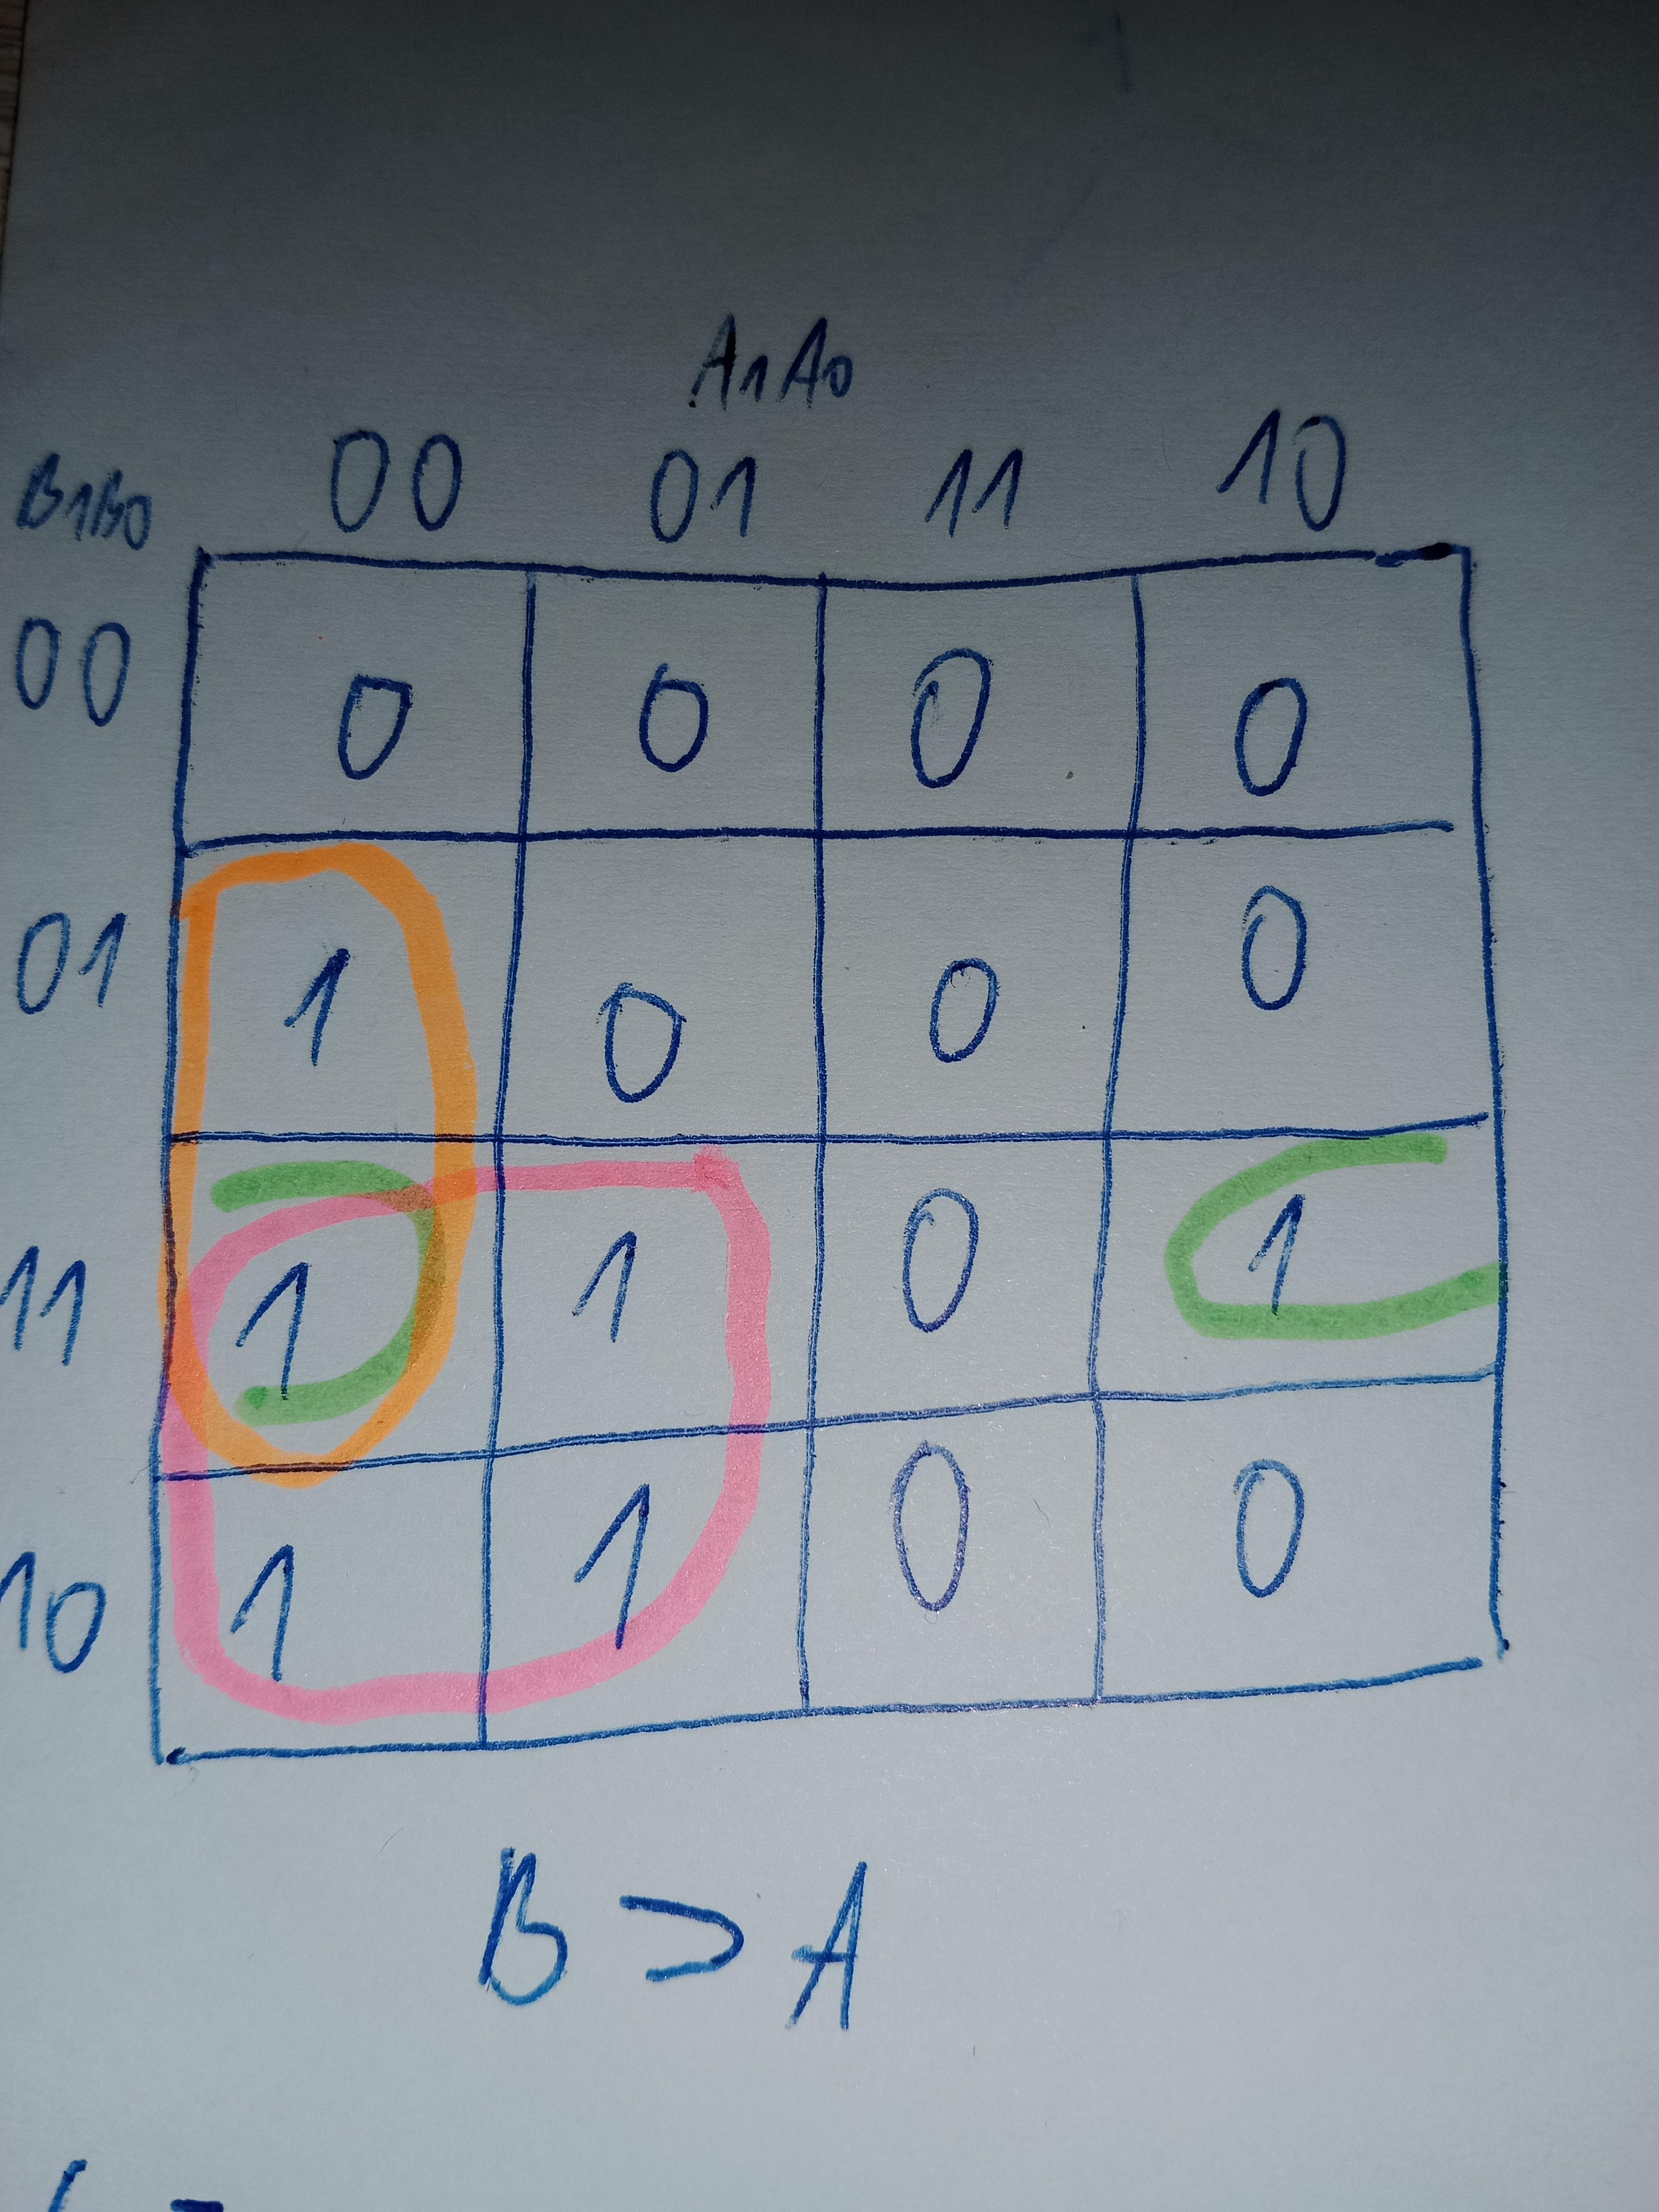 A1A0
B1B0 00 01 11 10
00 0 0 0 0
01 1 0 0 0
11 1 1 0 1
10 1 1 0 0
B > A